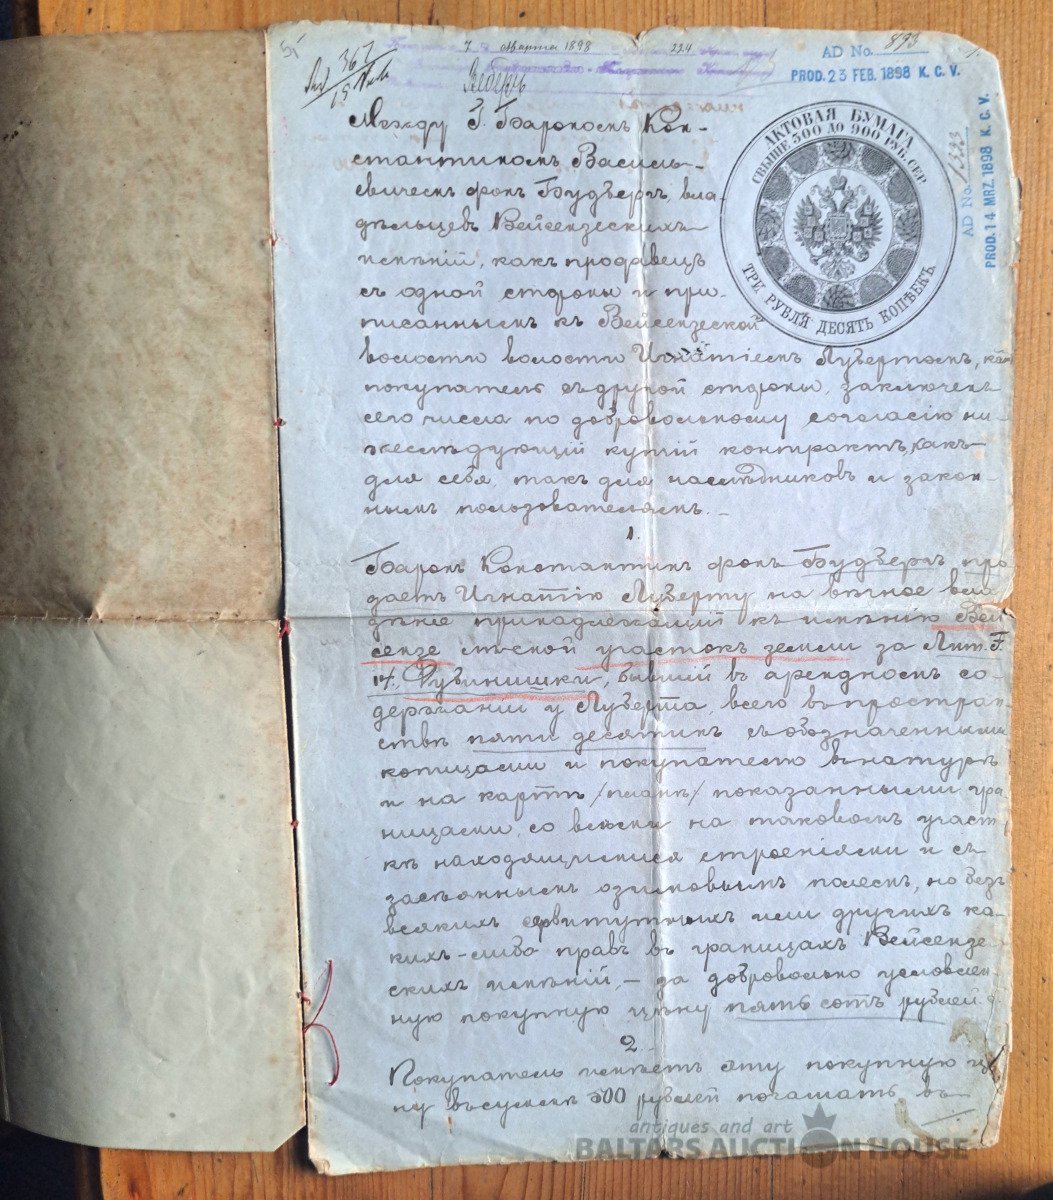 5,-
367
7 Марта 1898
224
AD No. 893
PROD. 23 FEB. 1898 K. C. V.
AD No. 1333
PROD. 14 MRZ. 1898 K. C. V.
АКТОВАЯ БУМАГА
СВЫШЕ 500 ДО 900 РУБ. СЕР
ТРИ РУБЛЯ ДЕСЯТЬ КОПѢЕКЪ
Между Г. Барономъ Кон-
стантиномъ Василь-
евичемъ фонъ Будбергъ, вла-
дѣльцевъ Вейсензескихъ
имѣній, какъ продавецъ
съ одной стороны и при-
писаннымъ къ Вейсензеской
волости Игнатіемъ Лубертомъ, какъ
покупатель съ другой стороны, заключенъ
сего числа по добровольному согласію ни-
жеслѣдующій купчій контрактъ, какъ
для себя, такъ для наслѣдниковъ и закон-
нымъ пользователямъ.
1.
Баронъ Константинъ фонъ Будбергъ про
даетъ Игнатію Луберту на вѣчное вла
дѣніе принадлежащій къ имѣнію Вей
сензе участокъ земли за Лит. F.
14, бывшій въ арендномъ со-
держаніи у Луберта, всего въ простран-
ствѣ пяти десятинъ съ обозначенными
копицами и покупателю въ натурѣ
и на картѣ /планѣ/ показанными гра
ницами, со всѣми на таковомъ участ
кѣ находящимися строеніями и съ
засѣяннымъ озимовымъ полемъ, но безъ
всякихъ сервитутныхъ или другихъ ка-
кихъ-либо правъ въ границахъ Вейсензе
скихъ имѣній, – за добровольно условлен-
ную покупную цѣну пять сотъ рублей
2.
Покупатель имѣетъ эту покупную цѣ
ну въ суммѣ 500 рублей погашать въ
antiques and art
BALTARS AUCTION HOUSE